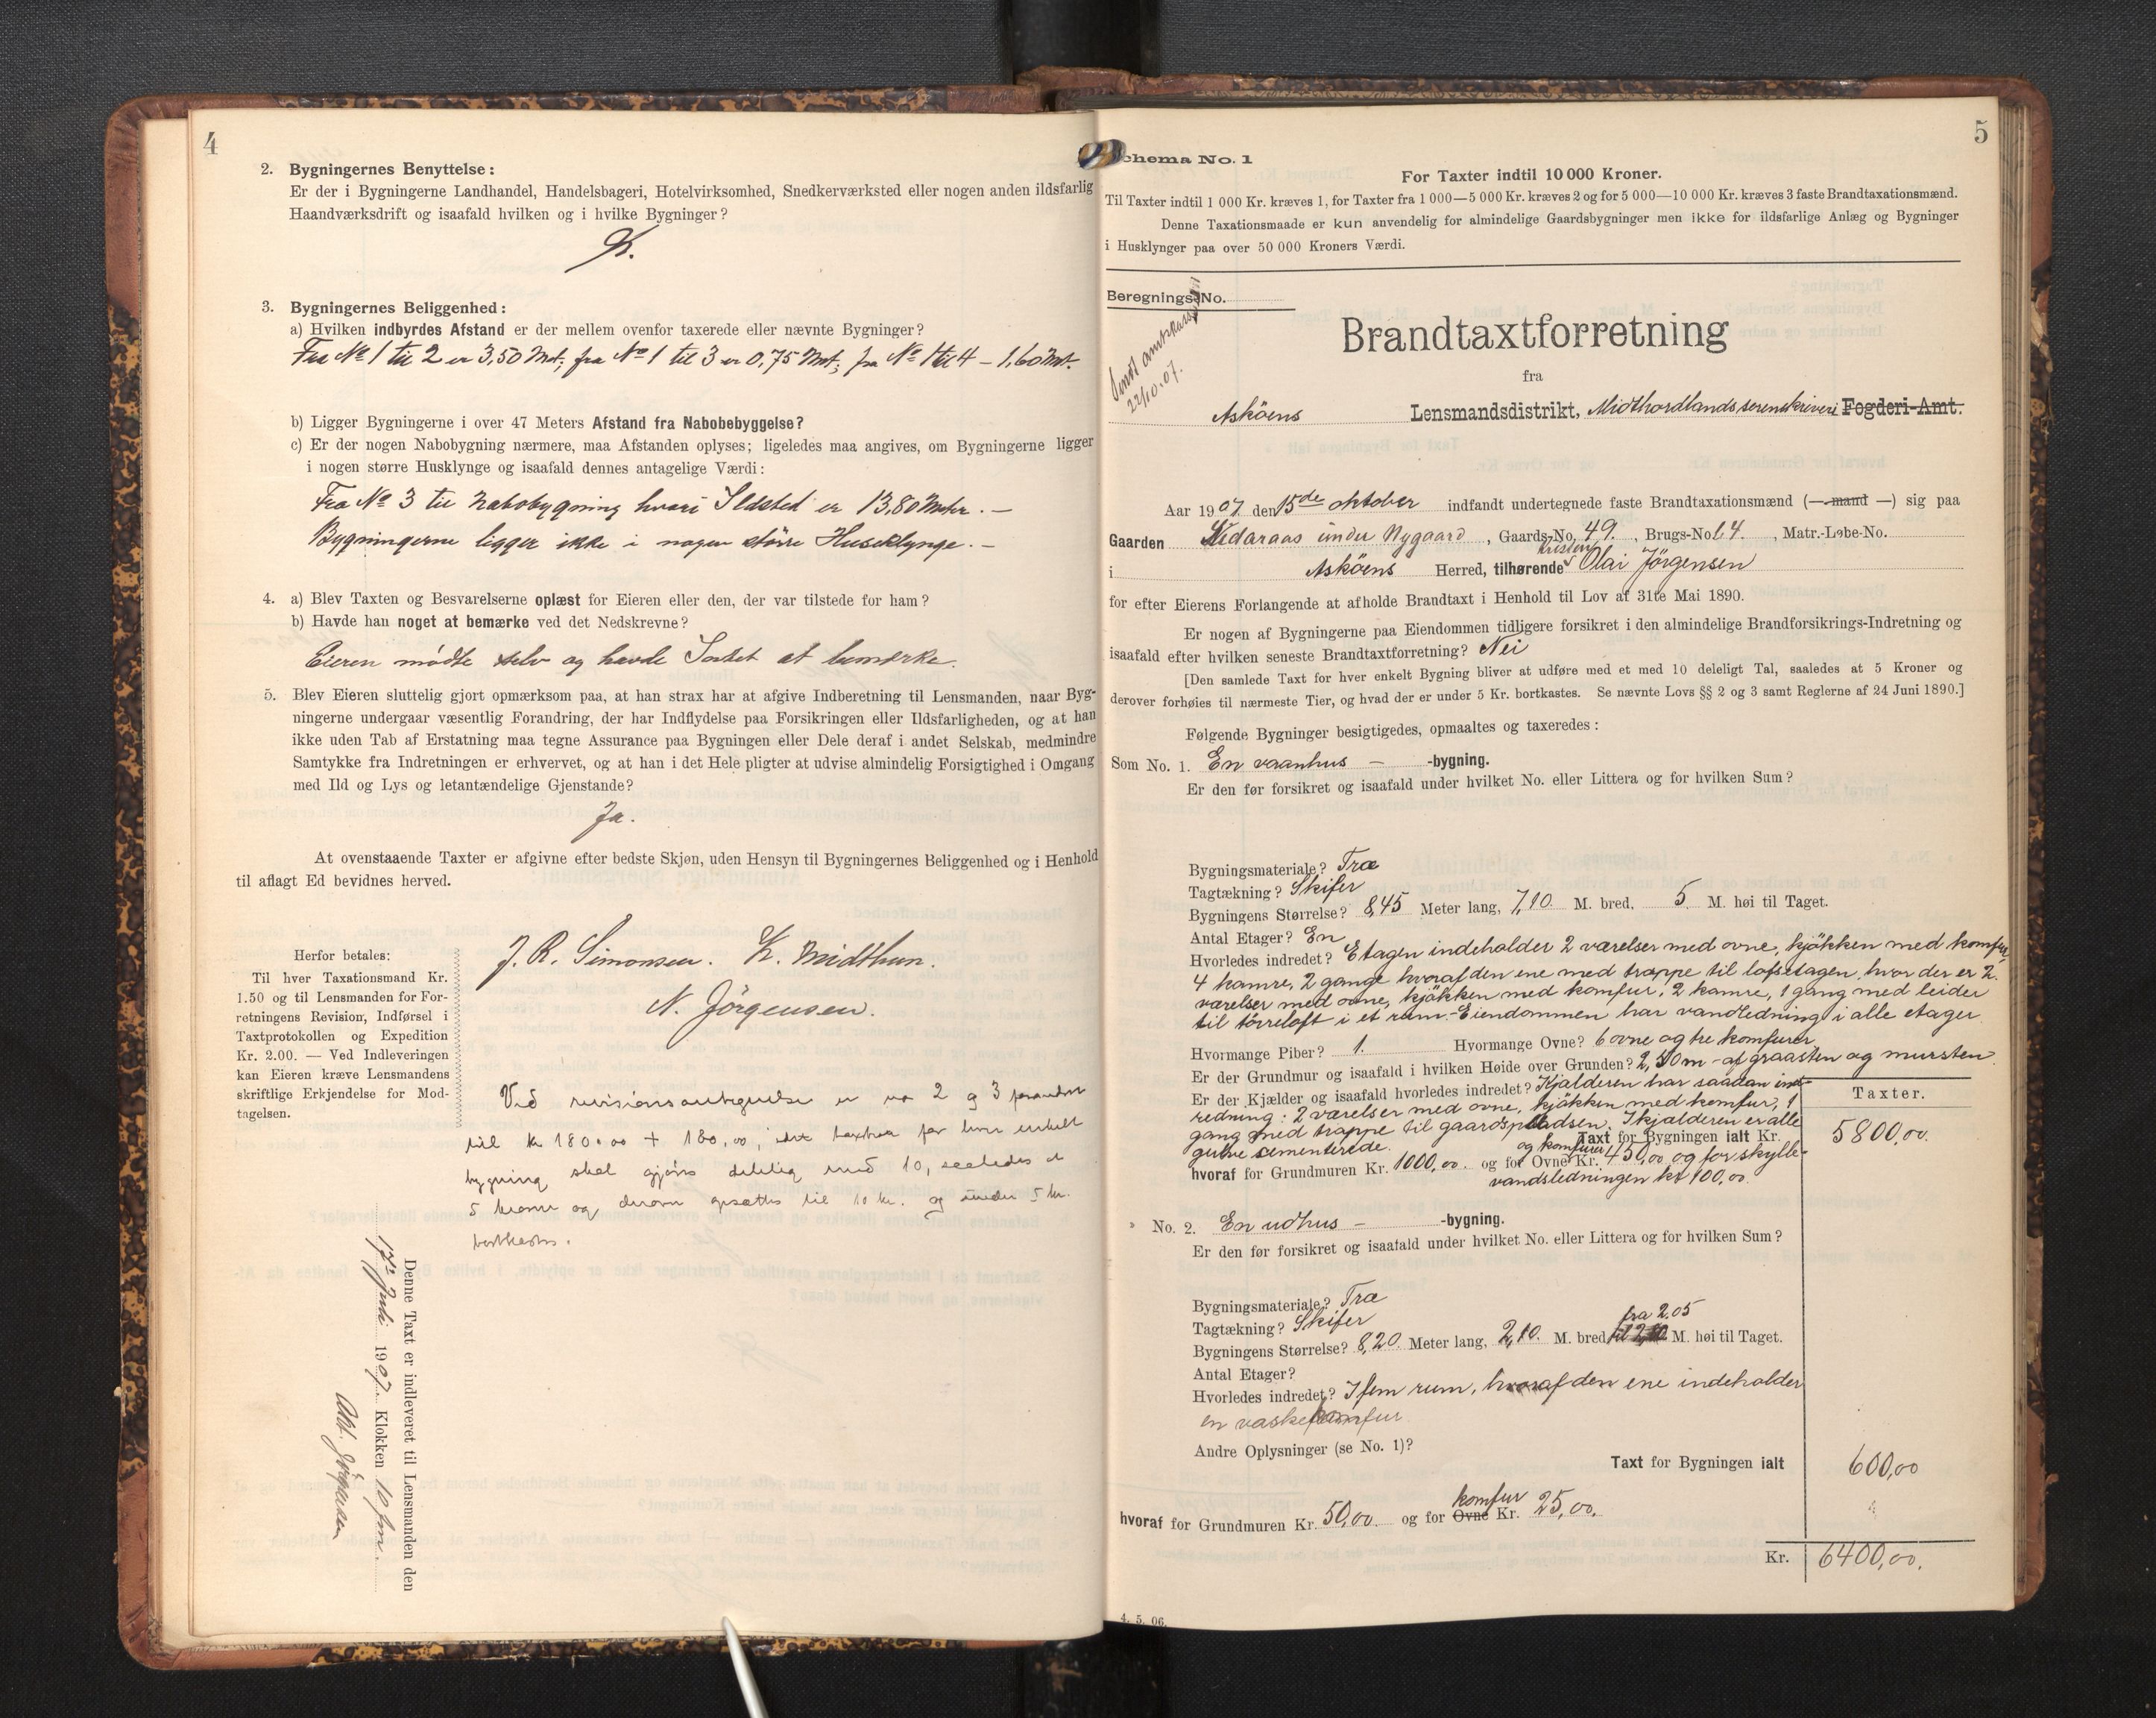 4
2. Bygningernes Benyttelse:
Er der i Bygningerne Landhandel, Handelsbageri, Hotelvirksomhed, Snedkerværksted eller nogen anden ildsfarlig
Haandværksdrift og isaafald hvilken og i hvilke Bygninger?
3. Bygningernes Beliggenhed:
a) Hvilken indbyrdes Afstand er der mellem ovenfor taxerede eller nævnte Bygninger?
Fra No 1 til 2 er 3,50 Met; fra No 1 til 3 er 0,75 Met; fra No 1 til 4 – 1,60 Met.
b) Ligger Bygningerne i over 47 Meters Afstand fra Nabobebyggelse?
c) Er der nogen Nabobygning nærmere, maa Afstanden oplyses; ligeledes maa angives, om Bygningerne ligger
i nogen større Husklynge og isaafald dennes antagelige Værdi:
Fra No 3 til Nabobygning hvori Ildsted er 13,80 Meter. –
Bygningerne ligger ikke i nogen större Husklynge. –
4. a) Blev Taxten og Besvarelserne oplæst for Eieren eller den, der var tilstede for ham?
b) Havde han noget at bemærke ved det Nedskrevne?
Eieren mödte selv og havde Intet at bemærke.
5. Blev Eieren sluttelig gjort opmærksom paa, at han strax har at afgive Indberetning til Lensmanden, naar Byg-
ningerne undergaar væsentlig Forandring, der har Indflydelse paa Forsikringen eller Ildsfarligheden, og at han
ikke uden Tab af Erstatning maa tegne Assurance paa Bygningen eller Dele deraf i andet Selskab, medmindre
Samtykke fra Indretningen er erhvervet, og at han i det Hele pligter at udvise almindelig Forsigtighed i Omgang
med Ild og Lys og letantændelige Gjenstande?
Ja.
At ovenstaaende Taxter er afgivne efter bedste Skjøn, uden Hensyn til Bygningernes Beliggenhed og i Henhold
til aflagt Ed bevidnes herved.
J. R. Simonsen. K. Midthun.
N. Jörgensen.
Herfor betales:
Til hver Taxationsmand Kr.
1.50 og til Lensmanden for For-
retningens Revision, Indførsel i
Taxtprotokollen og Expedition
Kr. 2.00. — Ved Indleveringen
kan Eieren kræve Lensmandens
skriftlige Erkjendelse for Mod-
tagelsen.
Ved er no 2 g 3 forandret
til kr 180,00 + 180,00, idet taxten for hver enkelt
bygning skal gjöres delelig med 10, saaledes at
5 kroner og derover opsættes til 10 kr. og under 5 kr.
bortkastes.
Denne Taxt er indleveret til Lensmanden den
17de Juli 1907 Klokken 10 fm.
Jörgensen
5
Schema No. 1
For Taxter indtil 10 000 Kroner.
Til Taxter indtil 1 000 Kr. kræves 1, for Taxter fra 1 000—5 000 Kr. kræves 2 og for 5 000—10 000 Kr. kræves 3 faste Brandtaxationsmænd.
Denne Taxationsmaade er kun anvendelig for almindelige Gaardsbygninger men ikke for ildsfarlige Anlæg og Bygninger
i Husklynger paa over 50 000 Kroners Værdi.
Beregnings-No.
Sendt
22/10.07.
Brandtaxtforretning
fra
Asköens Lensmandsdistrikt, Midthordlands sorenskriveri Fogderi-Amt.
Aar 1907 den 15de oktober indfandt undertegnede faste Brandtaxationsmænd (— mand —) sig paa
Gaarden Kedaraas under Nygaard, Gaards-No. 49., Brugs-No. 64., Matr.-Løbe-No.
i Asköens Herred, tilhørende Kristen Olai Jörgensen
for efter Eierens Forlangende at afholde Brandtaxt i Henhold til Lov af 31te Mai 1890.
Er nogen af Bygningerne paa Eiendommen tidligere forsikret i den almindelige Brandforsikrings-Indretning og
isaafald efter hvilken seneste Brandtaxtforretning? Nei
[Den samlede Taxt for hver enkelt Bygning bliver at udføre med et med 10 deleligt Tal, saaledes at 5 Kroner og
derover forhøies til nærmeste Tier, og hvad der er under 5 Kr. bortkastes. Se nævnte Lovs §§ 2 og 3 samt Reglerne af 24 Juni 1890.]
Følgende Bygninger besigtigedes, opmaaltes og taxeredes:
Som No. 1. En vaanhus – -bygning.
Er den før forsikret og isaafald under hvilket No. eller Littera og for hvilken Sum?
Bygningsmateriale? Træ
Tagtækning? Skifer
Bygningens Størrelse? 8,45 Meter lang, 7,10 M. bred, 5 M. høi til Taget.
Antal Etager? En
Hvorledes indredet? Etagen indeholder 2 værelser med ovne, kjökken med komfur,
4 kamre, 2 gange hvoraf den ene med trappe til loftsetagen, hvor der er 2
værelser med ovne, kjökken med komfur, 2 kamre, 1 gang med leider
til törreloft i et rum. – Eiendommen har vandledning i alle etager
Hvormange Piber? 1. Hvormange Ovne? 6 ovne og tre komfurer
Er der Grundmur og isaafald i hvilken Høide over Grunden? 2,30 m – af graasten og mursten
Er der Kjælder og isaafald hvorledes indredet? Kjælderen har saadan ind-
redning: 2 værelser med ovne, kjökken med komfur, 1
gang med trappe til gaardspladsen. I kjælderen er alle
gulve sementerede.
Taxter.
Taxt for Bygningen ialt Kr. 5800,00.
hvoraf for Grundmuren Kr. 1000,00. og for Ovne og komfurer Kr. 450,00 og for skylle-
vandsledningen kr 100,00.
No. 2. En udhus – -bygning.
Er den før forsikret og isaafald under hvilket No. eller Littera og for hvilken Sum?
Bygningsmateriale? Træ
Tagtækning? Skifer
fra 2,05
Bygningens Størrelse? 8,20. Meter lang, 2,10. M. bred, til M. høi til Taget.
Antal Etager?
Hvorledes indredet? I fem rum, hvoraf den ene indeholder
en vaskekomfur
Andre Oplysninger (se No. 1)?
Taxt for Bygningen ialt 600,00
komfur
hvoraf for Grundmuren Kr. 50,00. og for Ovne Kr. 25,00.
Kr. 6400,00.
4. 5. 06.